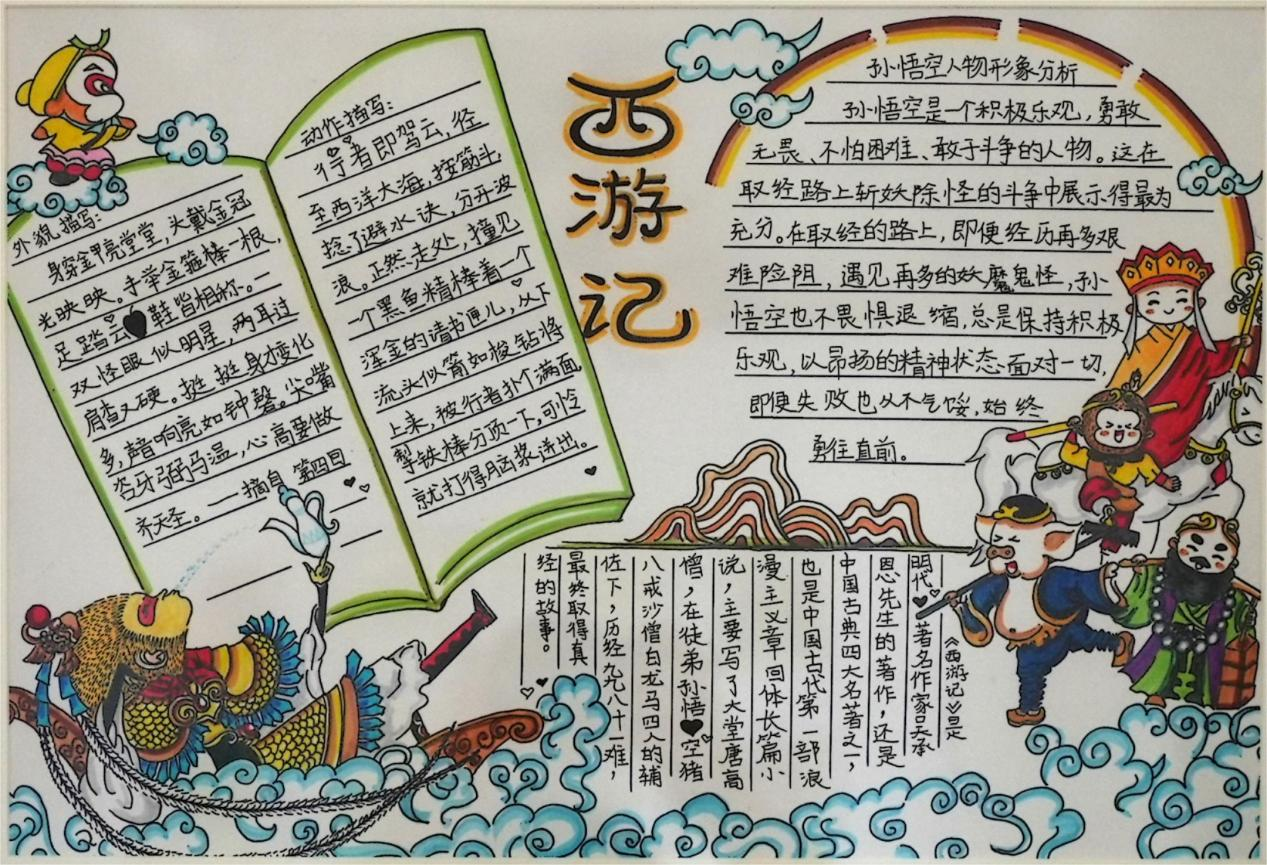 西游记
外貌描写:
身穿金甲亮堂堂,头戴金冠
光映映。手举金箍棒一根,
足踏云鞋皆相称。一
双怪眼似明星,两耳过
肩查又硬。挺挺身才变化
多,声音响亮如钟磬。尖嘴
咨牙弼马温,心高要做
齐天圣。——摘自 第四回
动作描写:
得者即驾云,径
至西洋大海,按筋斗
捻了避水诀,分开波
浪。正然走处,撞见
一个黑鱼精棒着一个
浑金的请书匣儿,从下
流头似箭如梭钻将
上来,被行者扑个满面,
掣铁棒分顶一下,可怜
就打得脑浆迸出。
孙悟空人物形象分析
孙悟空是一个积极乐观,勇敢
无畏、不怕困难、敢于斗争的人物。这在
取经路上斩妖除怪的斗争中展示得最为
充分。在取经的路上,即便经历再多艰
难险阻,遇见再多的妖魔鬼怪,孙
悟空也不畏惧退缩,总是保持积极
乐观,以昂扬的精神状态面对一切,
即便失败也从不气馁,始终
勇往直前。
《西游记》是
明代著名作家吴承
恩先生的著作,还是
中国古典四大名著之一,
也是中国古代第一部浪
漫主义章回体长篇小
说,主要写了大堂唐高
僧,在徒弟孙悟空猪
八戒沙僧白龙马四人的辅
佐下,历经九九八十一难,
最终取得真
经的故事。